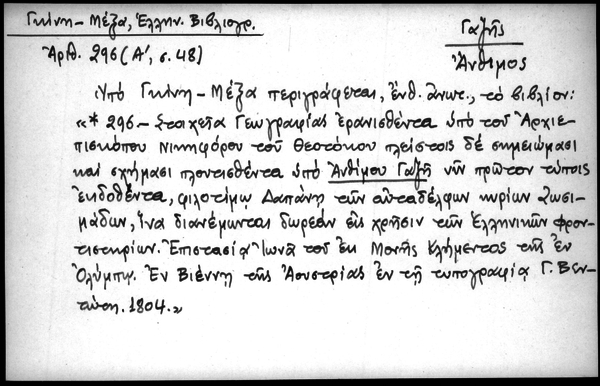 Γκίνη – Μέξα, Ἑλλην. Βιβλιογρ.
Ἀρθ. 296 (Α', σ. 48)
Γαζῆς
Ἄνθιμος
Ὑπὸ Γκίνη – Μέξα περιγράφεται, ἔνθ. ἄνωτ., τὸ βιβλίον:
«* 296.– Στοιχεῖα Γεωγραφίας ἐρανισθέντα ὑπὸ τοῦ Ἀρχιε-
πισκόπου Νικηφόρου τοῦ Θεοτόκου πλείστοις δὲ σημειώμασι
καὶ σχήμασι πλουτισθέντα ὑπὸ Ἀνθίμου Γαζῆ νῦν πρῶτον τύποις
ἐκδοθέντα, φιλοτίμῳ δαπάνῃ τῶν αὐταδέλφων κυρίων Ζωσι-
μάδων, ἵνα διανέμωνται δωρεὰν εἰς χρῆσιν τῶν Ἑλληνικῶν φρον-
τιστηρίων. Ἐπιστασίᾳ Ἰωνᾶ τοῦ ἐκ Μονῆς Κλήμεντος τῆς ἐν
Ὀλύμπῳ. Ἐν Βιέννῃ τῆς Ἀουστρίας ἐν τῇ τυπογραφίᾳ Γ. Βεν-
τώτῃ. 1804.»